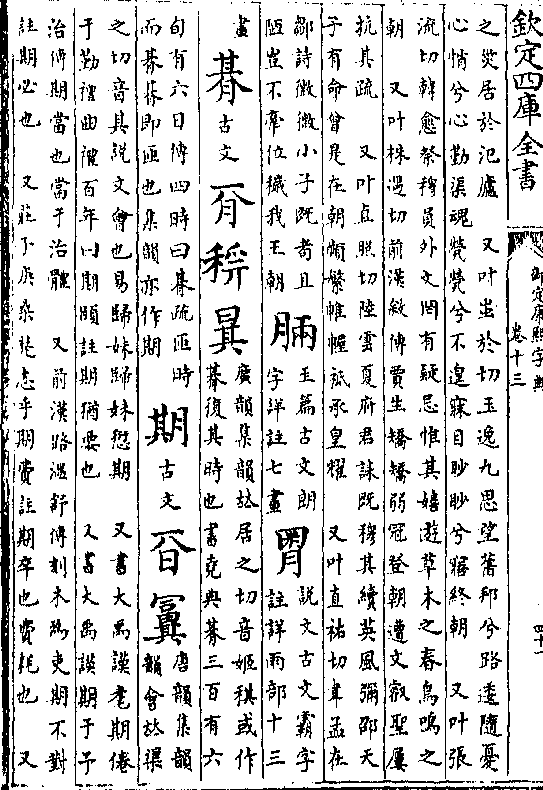 欽定四庫全書
御定康熙字典
卷十三
四十一
之災居於汜廬 又叶蚩於切王逸九思望舊邦兮路逶隨憂
心悄兮心勤渠魂煢煢兮不遑寐目眇眇兮寤終朝 又叶張
流切韓愈祭穆員外文罔有疑忌惟其嬉遊草木之春鳥鳴之
朝 又叶株遇切前漢敘傳賈生矯矯弱冠登朝遭文叡聖屢
抗其疏 又叶直照切陸雲夏府君誄既穆其績英風彌邵天
子有命曾是在朝頻繁帷幄祗承皇耀 又叶直祐切韋孟在
鄒詩微微小子既耇且
陋豈不牽位穢我王朝
脼
玉篇古文朗
字詳註七畫
説文古文霸字
註詳雨部十三
畫
朞
古文
稘
廣韻集韻𠀤居之切音姬稘或作
朞復其時也書堯典朞三百有六
旬有六日傳四時曰朞疏匝時
而朞朞即匝也集韻亦作期
期
古文
唐韻集韻
韻會𠀤渠
之切音其説文會也易歸妹歸妹愆期 又書大禹謨耄期倦
于勤禮曲禮百年曰期頤註期猶要也 又書大禹謨期于予
治傳期當也當于治體 又前漢路溫舒傳刻木為吏期不對
註期必也 又莊子庚桑楚志乎期費註期卒也費耗也 又